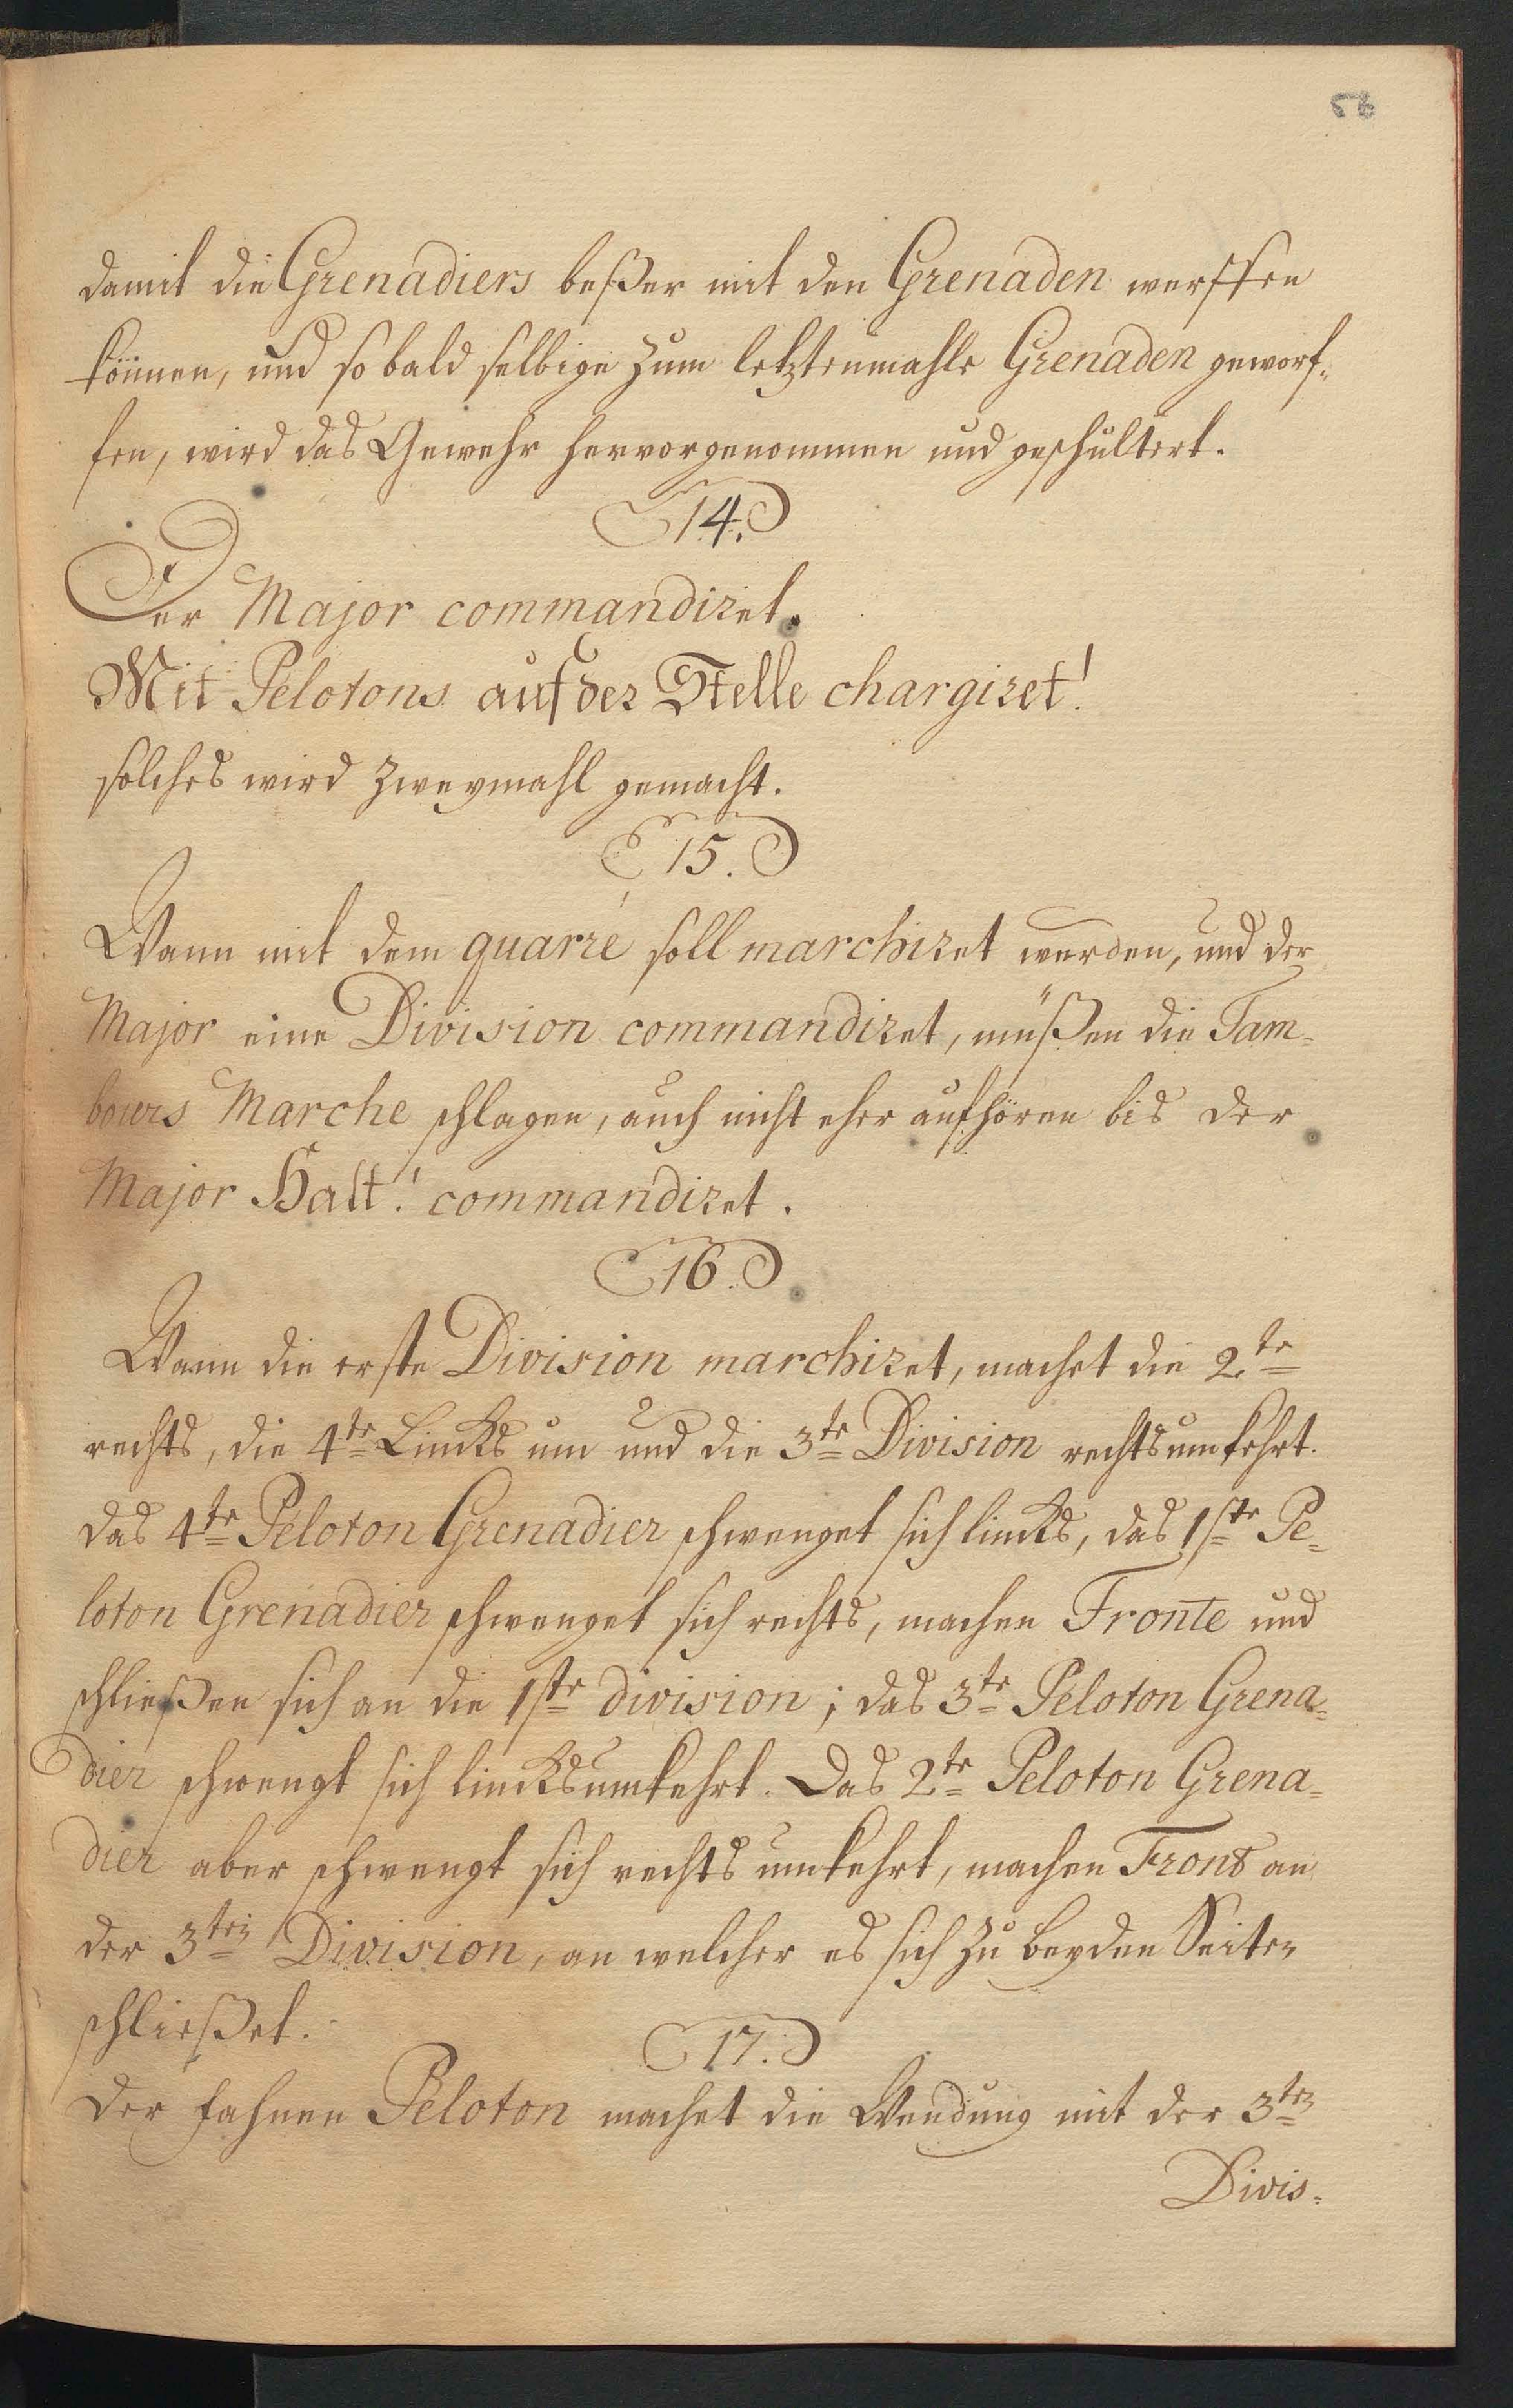 58
damit die Grenadiers beßer mit den Grenaden werffen
können, und so bald selbige zum letztenmahle Grenaden geworf=
fen, wird das Gewehr hervorgenommen und geschultert.
14.
Der Major commandiret.
Mit Pelotons auf der Stelle chargiret!
solches wird zweymahl gemacht.
15.
Wann mit dem quarré soll marchiret werden, und der
Major eine Division commandiret, müßen die Tam=
bours Marche schlagen, auch nicht eher aufhören bis der
Major Halt! commandiret.
16.
Wann die erste Division marchiret, machet die 2te
rechts, die 4te Lincks um und die 3te Division rechtsumkehrt.
das 4te Peloton Grenadier schwenget sich lincks, das 1ste Pe=
loton Grenadier schwenget sich rechts, machen Fronte und
schließen sich an die 1ste division; das 3te Peloton Grena=
dier schwengt sich lincksumkehrt. Das 2te Peloton Grena=
dier aber schwengt sich rechts umkehrt, machen Front an
der 3ten Division, an welcher es sich zu beyden Seiten
schließet.
17.
Der fahnen Peloton machet die Wendung mit der 3ten
Divis=